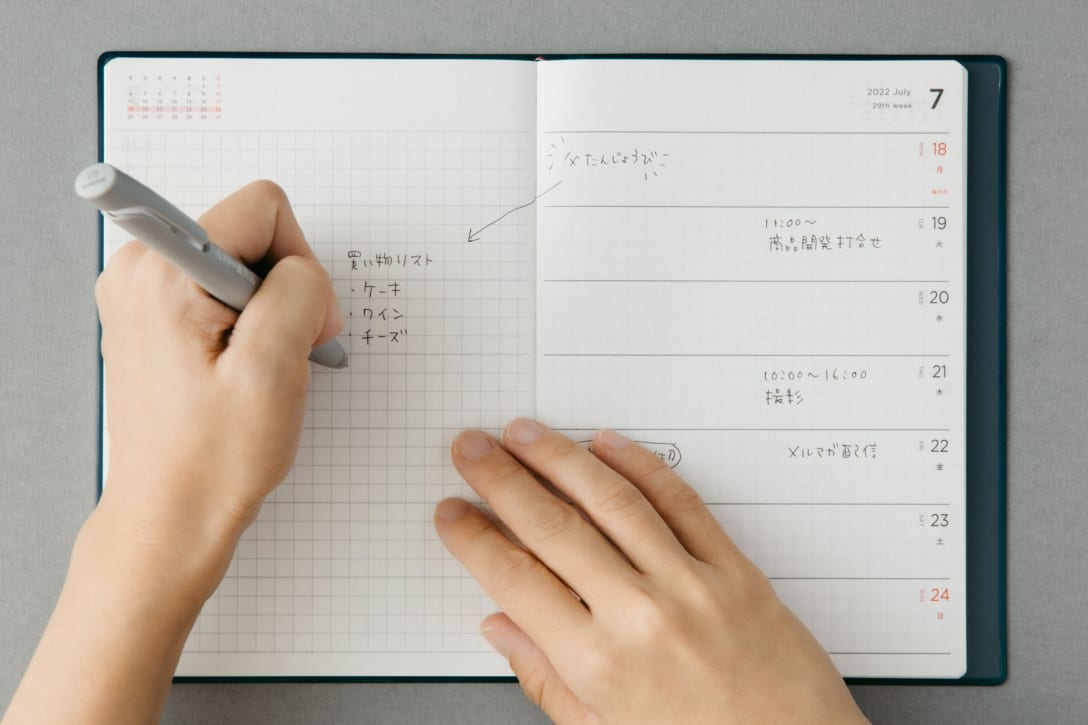 買い物リスト
・ケーキ
・ワイン
・チーズ
2022 July
29th week
7
父たんじょうび
MON
18
月
海の日
TUE
19
火
11:00〜
商品開発打合せ
WED
20
水
THU
21
木
10:00〜16:00
撮影
FRI
22
金
メルマガ配信
SAT
23
土
SUN
24
日